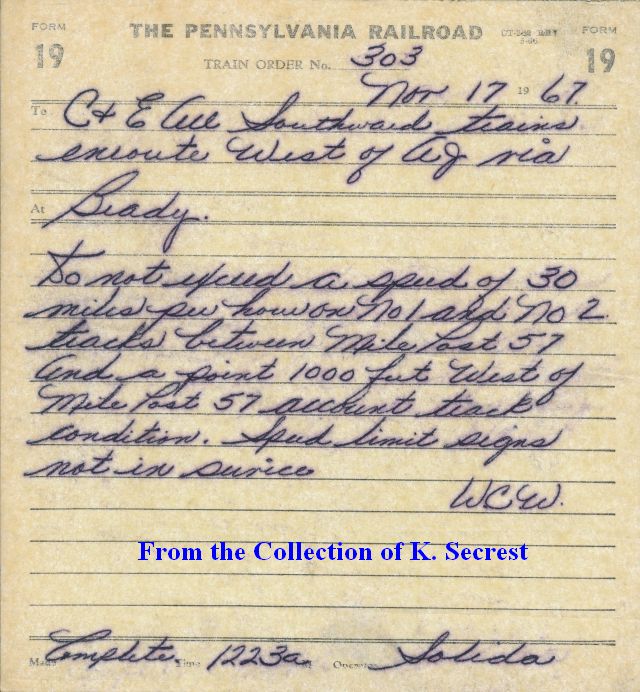 FORM 19 THE PENNSYLVANIA RAILROAD FORM 19
TRAIN ORDER No. 303
Nov 17 19 67.
To C+E All Southward trains
enroute West of AJ via
At Brady.
Do not exceed a speed of 30
miles per hour on No 1 and No 2
tracks between Mile Post 57
and a point 1000 feet West of
Mile Post 57 account track
condition. Speed limit signs
not in service
WCW.
From the Collection of K. Secrest
Made Complete Time 1223a M Operator Solida